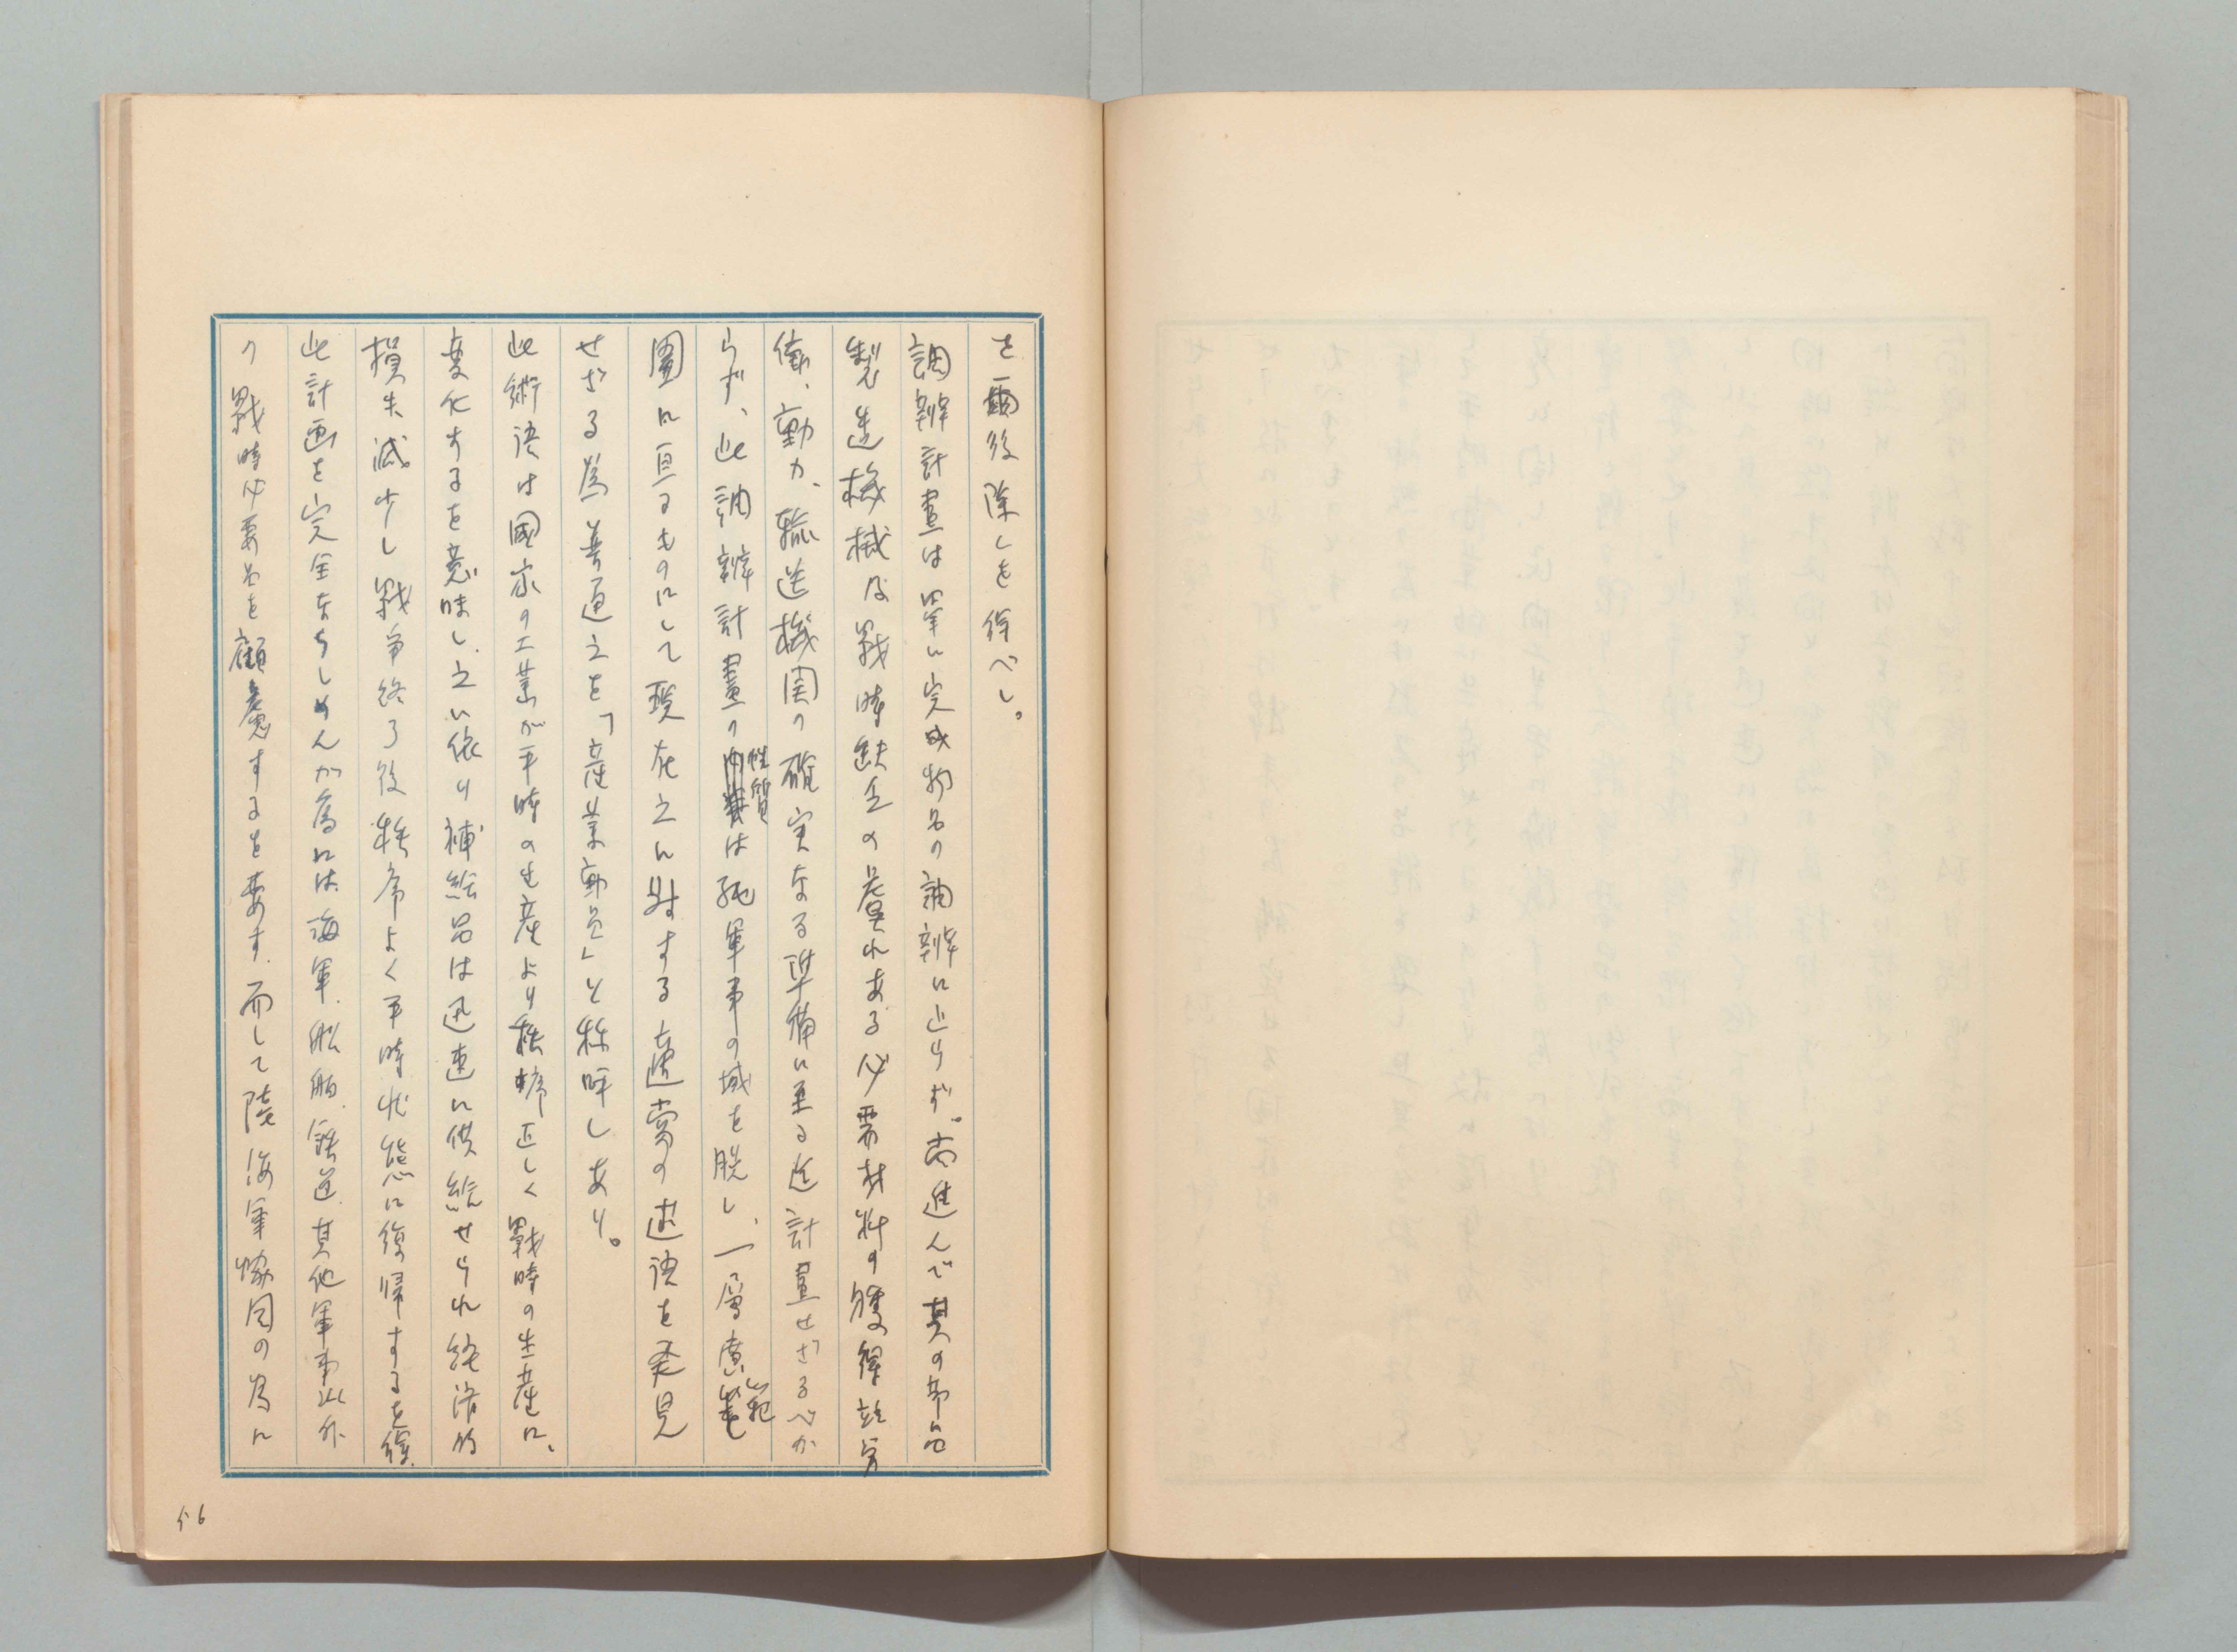 を爾後除しを得べし。
調辨計畫は單に完成物品の調辨に止らず。尚進んで其の部品
製造機械及戦時缺乏の虞れある必要材料の獲得竝労
働、動力、輸送機関の確実なる準備に至る迄計畫せざるべか
らず、此調辨計畫の性質は純軍事の域を脱し、一層廣範
圍に亘るものにして現在之に対する適當の述語を発見
せざる為普通之を「産業動員」と称呼しあり。
此術語は國家の工業が平時の生産より秩序正しく戦時の生産に、
変化するを意味し、之に依り補給品は迅速に供給せられ経済的
損失減少し戦争終了後秩序よく平時状態に復帰するを得、
此計画を完全ならしめんが為には海軍、船舶、鉄道、其他軍事以外
の戦時必要品を顧慮するを要す、而して陸海軍協同の為に
56